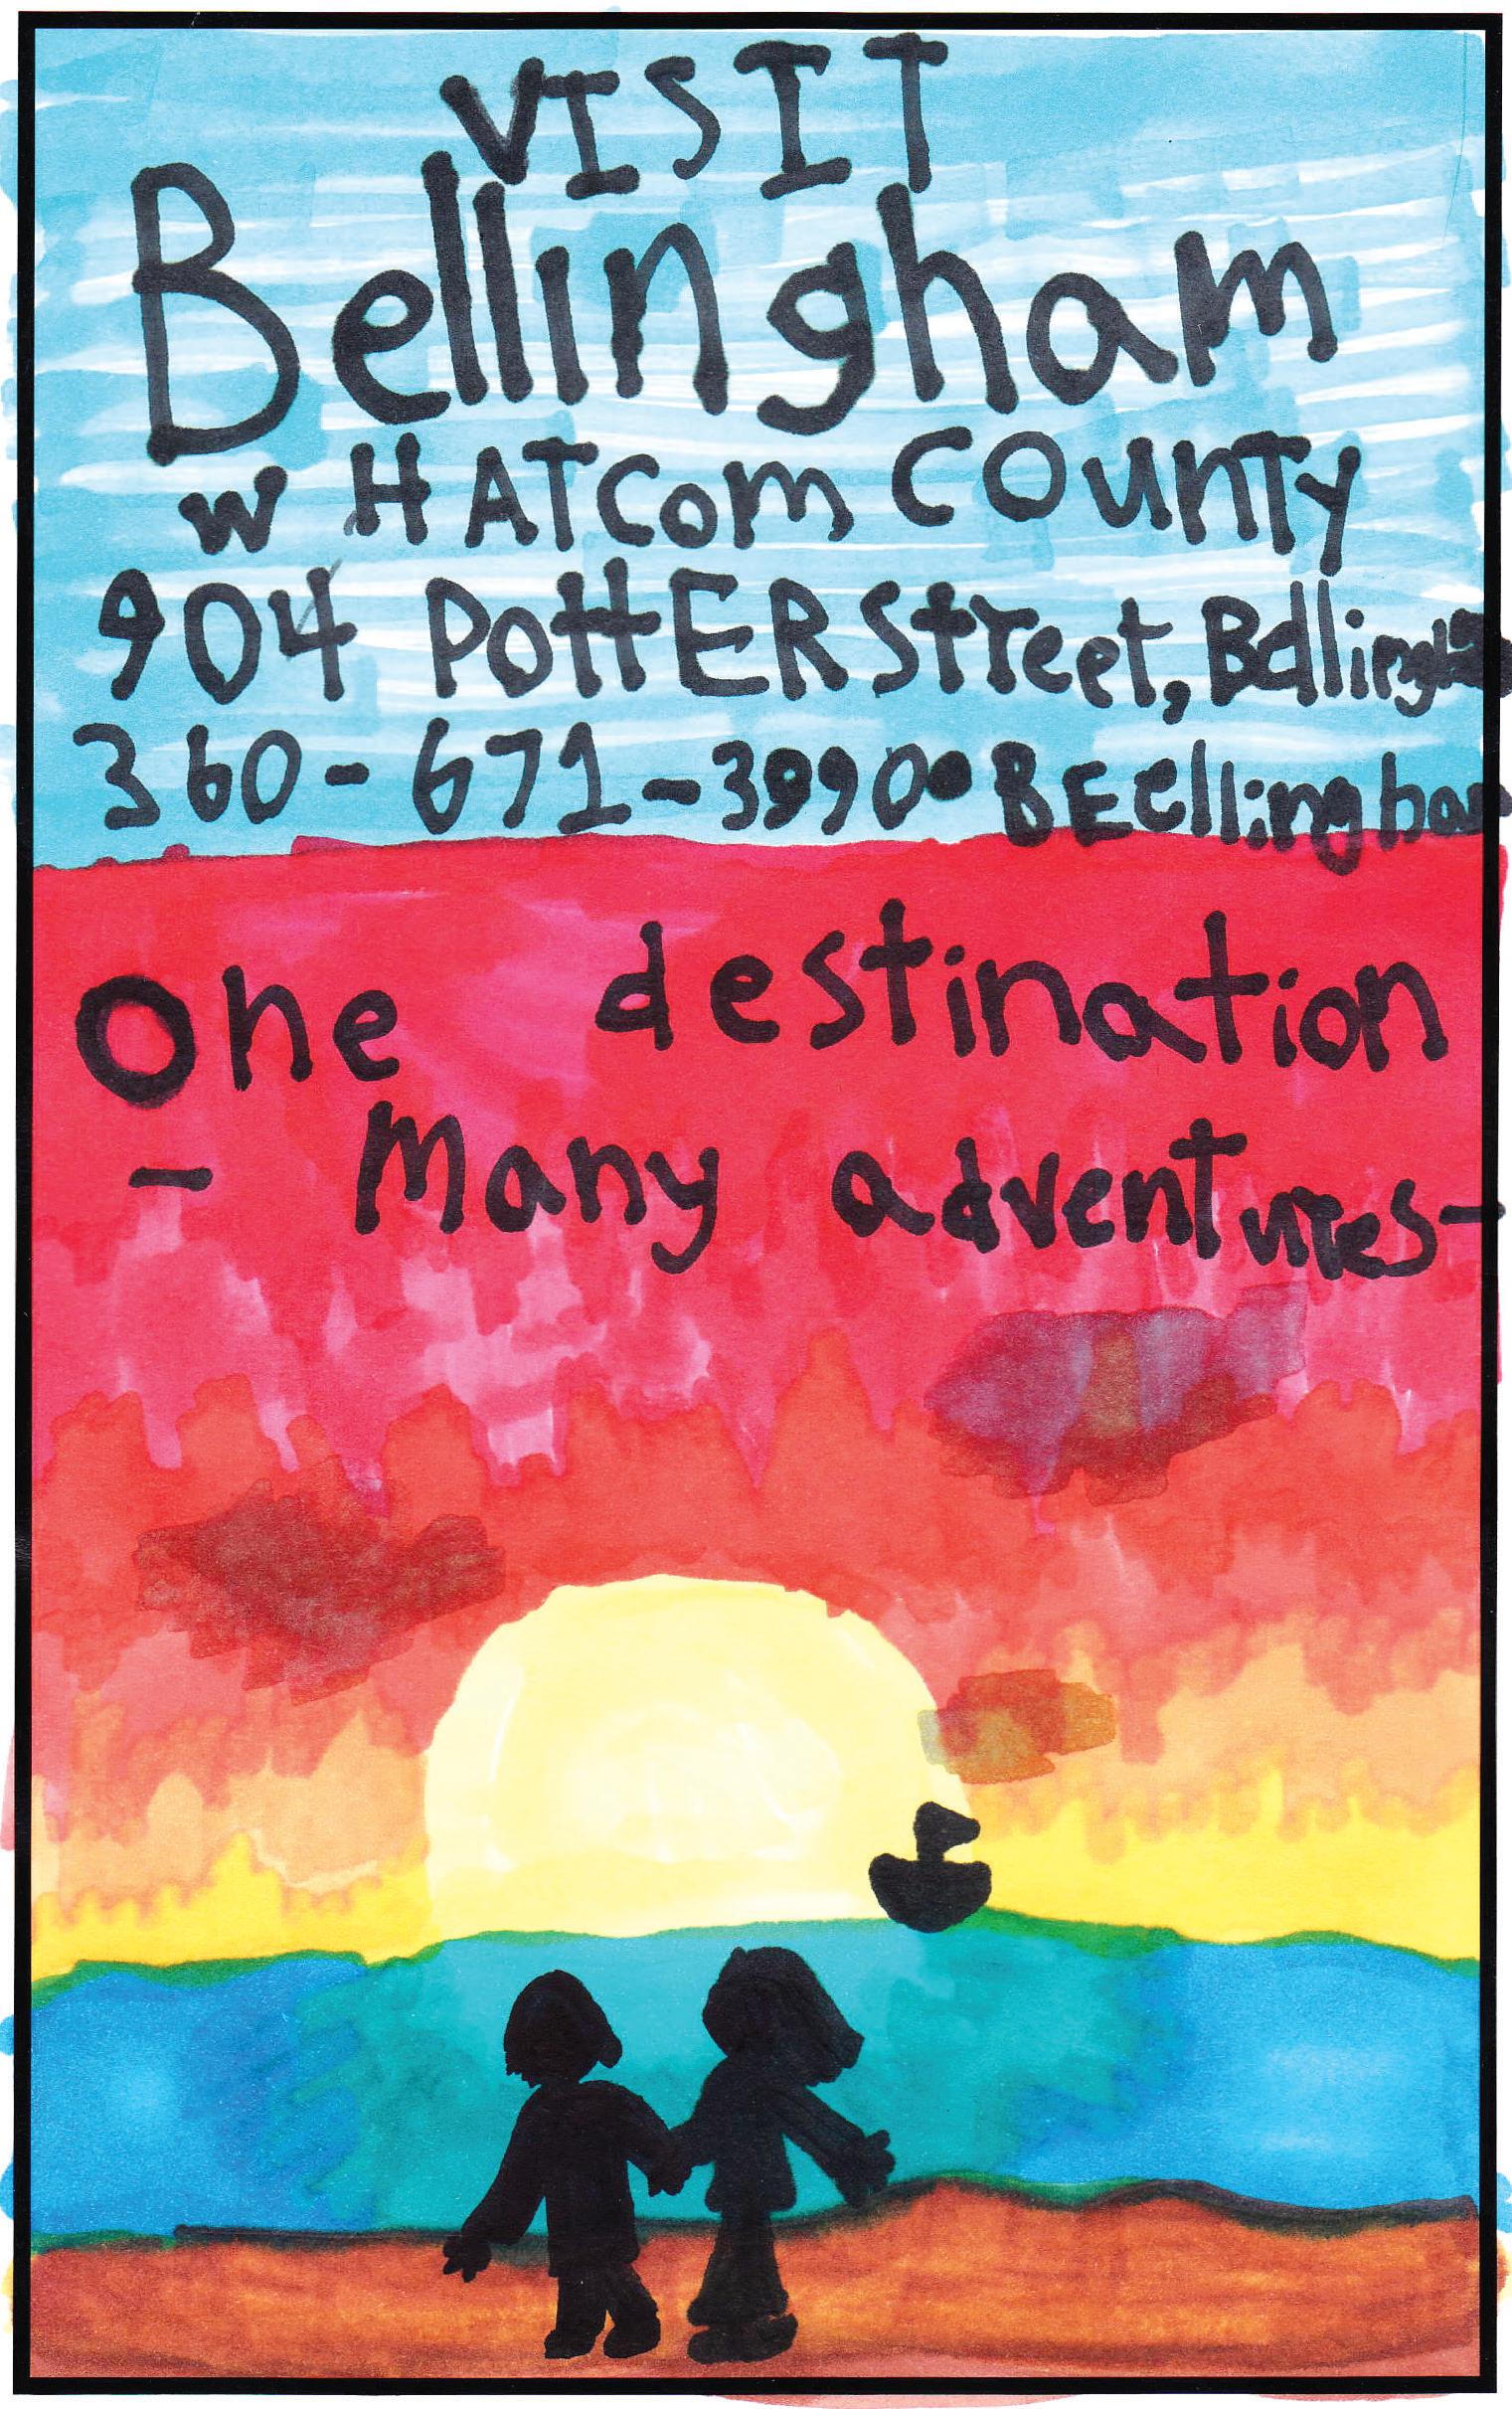 VISIT
Bellingham
WHATCom COUNTY
904 PottER Street, Bellingha
360-671-3990•BEellingha
One destination
- Many adventures-